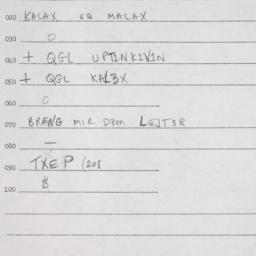 020 KALAX EQ MALAX
030 O
040 + QGL UPTINKIVIN
050 + QGL KAL3X
060 O
070 BRENG MIR D3OM LEJT3R
080 —
090 TXEP (208
100 $